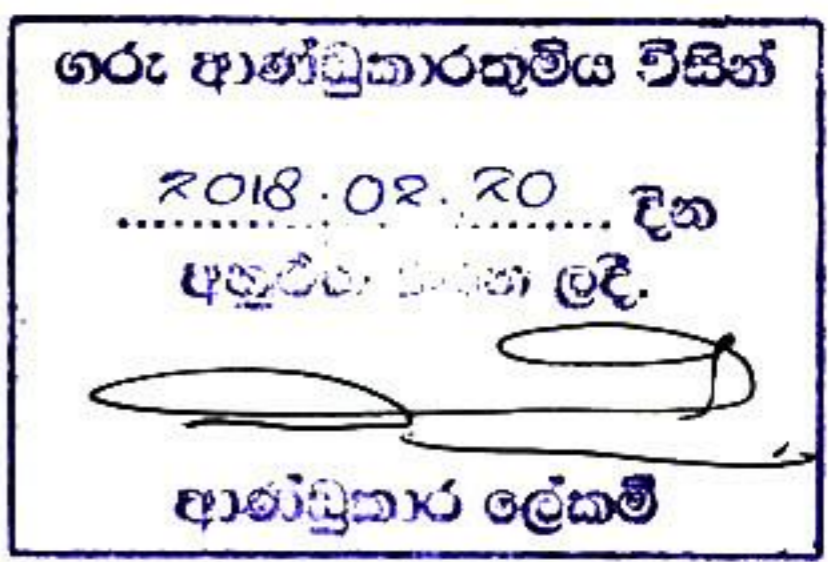 ගරු ආණ්ඩුකාරතුමිය විසින්
2018.02.20 දින
අනුමත ලදී.
ආණ්ඩුකාර ලේකම්